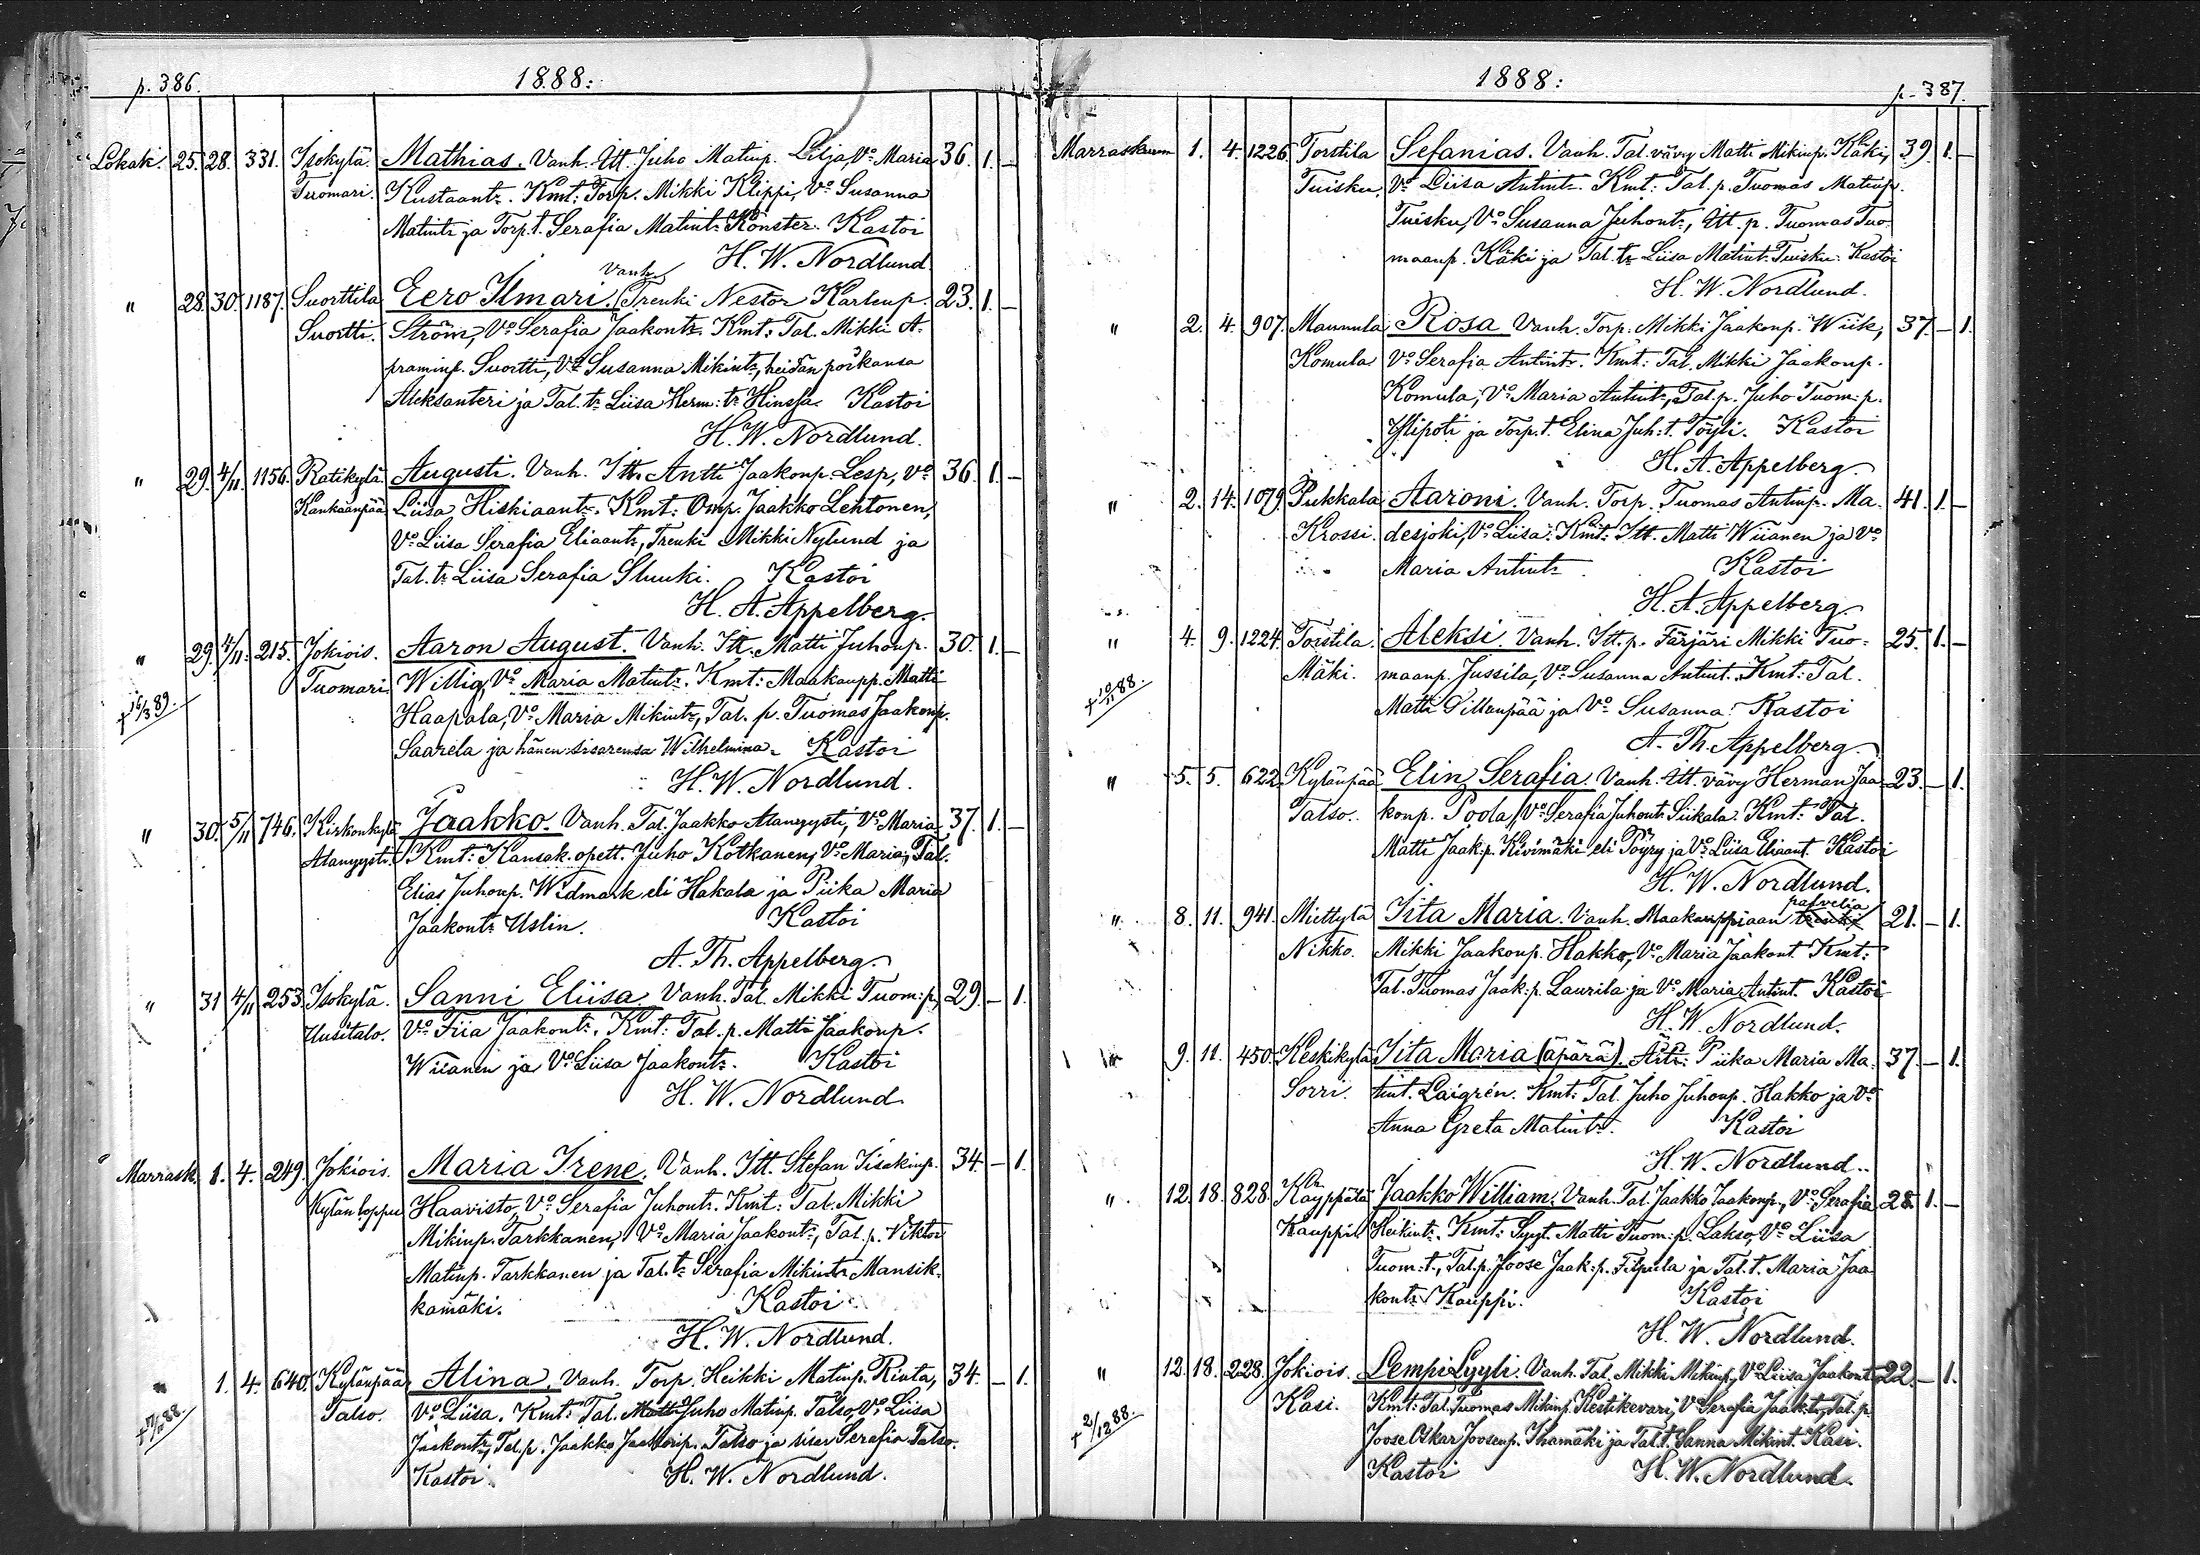 p. 386.
1888:
Lokak. 25. 28. 331. Isokylä. Mathias. Vanh. Itt. Juho Matinp. Lilja, Vo Maria 36. 1. —
Tuomari. Kustaantr. Kmt: Torp. Mikki Klippi, Vo Susanna
Matintr ja Torp. t. Serafia Matintr Könster. Kastoi
H. W. Nordlund.
Vanh.
" 28. 30. 1187. Suorttila Eero Ilmari. Trenki Nestor Karlenp. 23. 1. —
Suortti. Ström, Vo Serafia Jaakontr. Kmt: Tal. Mikki A-
praminp. Suortti, Vo Susanna Mikintr, heidän poikansa
Aleksanteri ja Tal. tr Liisa Herm: tr Hinssa. Kastoi
H. W. Nordlund.
" 29. 4/11. 1156. Ratikylä Augusti. Vanh. Itt. Antti Jaakonp. Lesp, Vo 36. 1. —
Kankaanpää Liisa Hiskiaantr. Kmt: Omp. Jaakko Lehtonen,
Vo Liisa Serafia Eliaantr, Trenki Mikki Nylund ja
Tal. tr Liisa Serafia Sluuki. Kastoi
H. A. Appelberg.
" 29. 4/11. 215. Jokiois. Aaron August. Vanh. Itt. Matti Juhonp. 30. 1. —
Tuomari. Willig, Vo Maria Matintr. Kmt: Maakaupp. Matti
† 16/3 89. Haapala, Vo Maria Mikintr, Tal. p. Tuomas Jaakonp.
Saarela ja hänen sisarensa Wilhelmina. Kastoi
H. W. Nordlund.
" 30. 5/11 746. Kirkonkylä Jaakko. Vanh. Tal. Jaakko Alanyysti, Vo Maria 37. 1. —
Alanyysti. Kmt: Kansak. opett. Juho Kotkanen, Vo Maria, Tal.
Elias Juhonp. Widmark eli Hakala ja Piika Maria
Jaakontr Uslin. Kastoi
A. Th. Appelberg.
" 31 4/11 253. Isokylä. Sanni Eliisa. Vanh. Tal. Mikki Tuom: p, 29. — 1.
Uusitalo. Vo Fiia Jaakontr. Kmt: Tal. p. Matti Jaakonp.
Wiianen ja Vo Liisa Jaakontr. Kastoi
H. W. Nordlund.
Marrask. 1. 4. 249. Jokiois. Maria Irene. Vanh. Itt. Stefan Iisakinp. 34. — 1.
Kylän loppu Haavisto, Vo Serafia Juhontr. Kmt: Tal. Mikki
Mikinp. Tarkkanen, Vo Maria Jaakontr, Tal. p. Viktor
Matinp. Tarkkanen ja Tal. tr Serafia Mikintr Mansik-
kamäki. Kastoi
H. W. Nordlund.
" 1. 4. 640. Kylänpää Alina. Vanh. Torp. Heikki Matinp. Rinta, 34. — 1.
Talso. Vo Liisa. Kmt: Tal. Matti Juho Matinp. Talso, Vo Liisa
Jaakontr, Tal. p. Jaakko Jaakonp. Talso ja sisar Serafia Talso.
Kastoi H. W. Nordlund.
1888:
p. 387.
Marraskuun 1. 4. 1226. Torstila Sefanias. Vanh. Tal. vävy Matti Mikinp. Käki, 39. 1. —
Tuisku. Vo Liisa Antintr. Kmt: Tal. p. Tuomas Matinp.
Tuisku, Vo Susanna Juhontr, Itt. p. Tuomas Tuo-
maanp. Käki ja Tal. tr Liisa Matint. Tuisku. Kastoi
H. W. Nordlund.
" 2. 4. 907. Maunula Rosa Vanh. Torp. Mikki Jaakonp. Wiik, 37. — 1.
Komula Vo Serafia Antintr. Kmt: Tal. Mikki Jaakonp.
Komula, Vo Maria Antintr, Tal. p. Juho Tuom: p.
Ylipoti ja Torp. t. Elina Juh: t. Töyli. Kastoi
H. A. Appelberg.
" 2. 14. 1079. Pukkala Aaroni. Vanh. Torp. Tuomas Antinp. Ma- 41. 1. —
Krossi. desjoki, Vo Liisa: Kmt: Itt. Matti Wiianen ja Vo
Maria Antintr. Kastoi
H. A. Appelberg.
" 4. 9. 1224. Torstila. Aleksi. Vanh. Itt. p. Färjäri Mikki Tuo- 25. 1. —
† 10/11 88. Mäki. maanp. Jussila, Vo Susanna Antint. Kmt: Tal.
Matti Tillanpää ja Vo Susanna. Kastoi
A. Th. Appelberg.
" 5. 5. 622. Kylänpää Elin Serafia. Vanh. Itt. vävy Herman Jaa- 23. — 1.
Talso. konp. Poola, Vo Serafia Juhontr Siikala. Kmt: Tal.
Matti Jaak: p. Kivimäki eli Pöyry ja Vo Liisa Eliaant. Kastoi
H. W. Nordlund.
palvelia
" 8. 11. 941. Miettylä Iita Maria. Vanh. Maakauppiaan trenki 21. — 1.
Nikko. Mikki Jaakonp. Hakko, Vo Maria Jaakont. Kmt:
Tal. Tuomas Jaak: p. Laurila ja Vo Maria Antint. Kastoi
H. W. Nordlund.
" 9. 11. 450. Keskikylä Iita Maria (äpärä). Äiti: Piika Maria Ma- 37. — 1.
Sorri. tint. Laigrén. Kmt: Tal. Juho Juhonp. Hakko ja Vo
Anna Greta Matintr. Kastoi
H. W. Nordlund.
" 12. 18. 828. Kauppila Jaakko William. Vanh. Tal. Jaakko Jaakonp, Vo Serafia 28. 1. —
Kauppi Heikintr. Kmt: Syyt. Matti Tuom: p. Lakso, Vo Liisa
Tuom: t., Tal. p. Joose Jaak: p. Filpula ja Tal. t. Maria Jaa-
kontr Kauppi. Kastoi
H. W. Nordlund.
" 12. 18. 228. Jokiois. Lempi Lyyli. Vanh. Tal. Mikki Mikinp, Vo Liisa Jaakont. 22. — 1.
† 2/12 88. Kasi. Kmt: Tal. Tuomas Mikinp. Kestikevari, Vo Serafia Jaak: t., Tal. p.
Joose Oskar Joosenp. Ihamäki ja Tal. t. Sanna Mikint. Kasi.
Kastoi H. W. Nordlund.